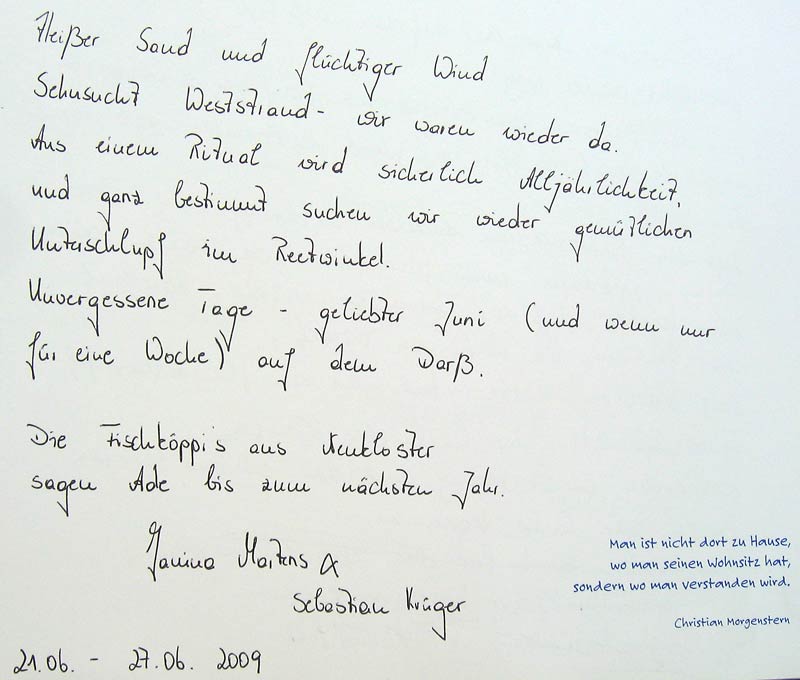 Heißer Sand und flüchtiger Wind
Sehnsucht Weststrand - wir waren wieder da.
Aus einem Ritual wird sicherlich Alljährlichkeit,
und ganz bestimmt suchen wir wieder gemütlichen
Unterschlupf im Reetwinkel.
Unvergessene Tage - geliebter Juni (und wenn nur
für eine Woche) auf dem Darß.
Die Fischköppi's aus Neukloster
sagen Ade bis zum nächsten Jahr.
Janina Martens &
Sebastian Krüger
21.06. - 27.06. 2009
Man ist nicht dort zu Hause,
wo man seinen Wohnsitz hat,
sondern wo man verstanden wird.
Christian Morgenstern